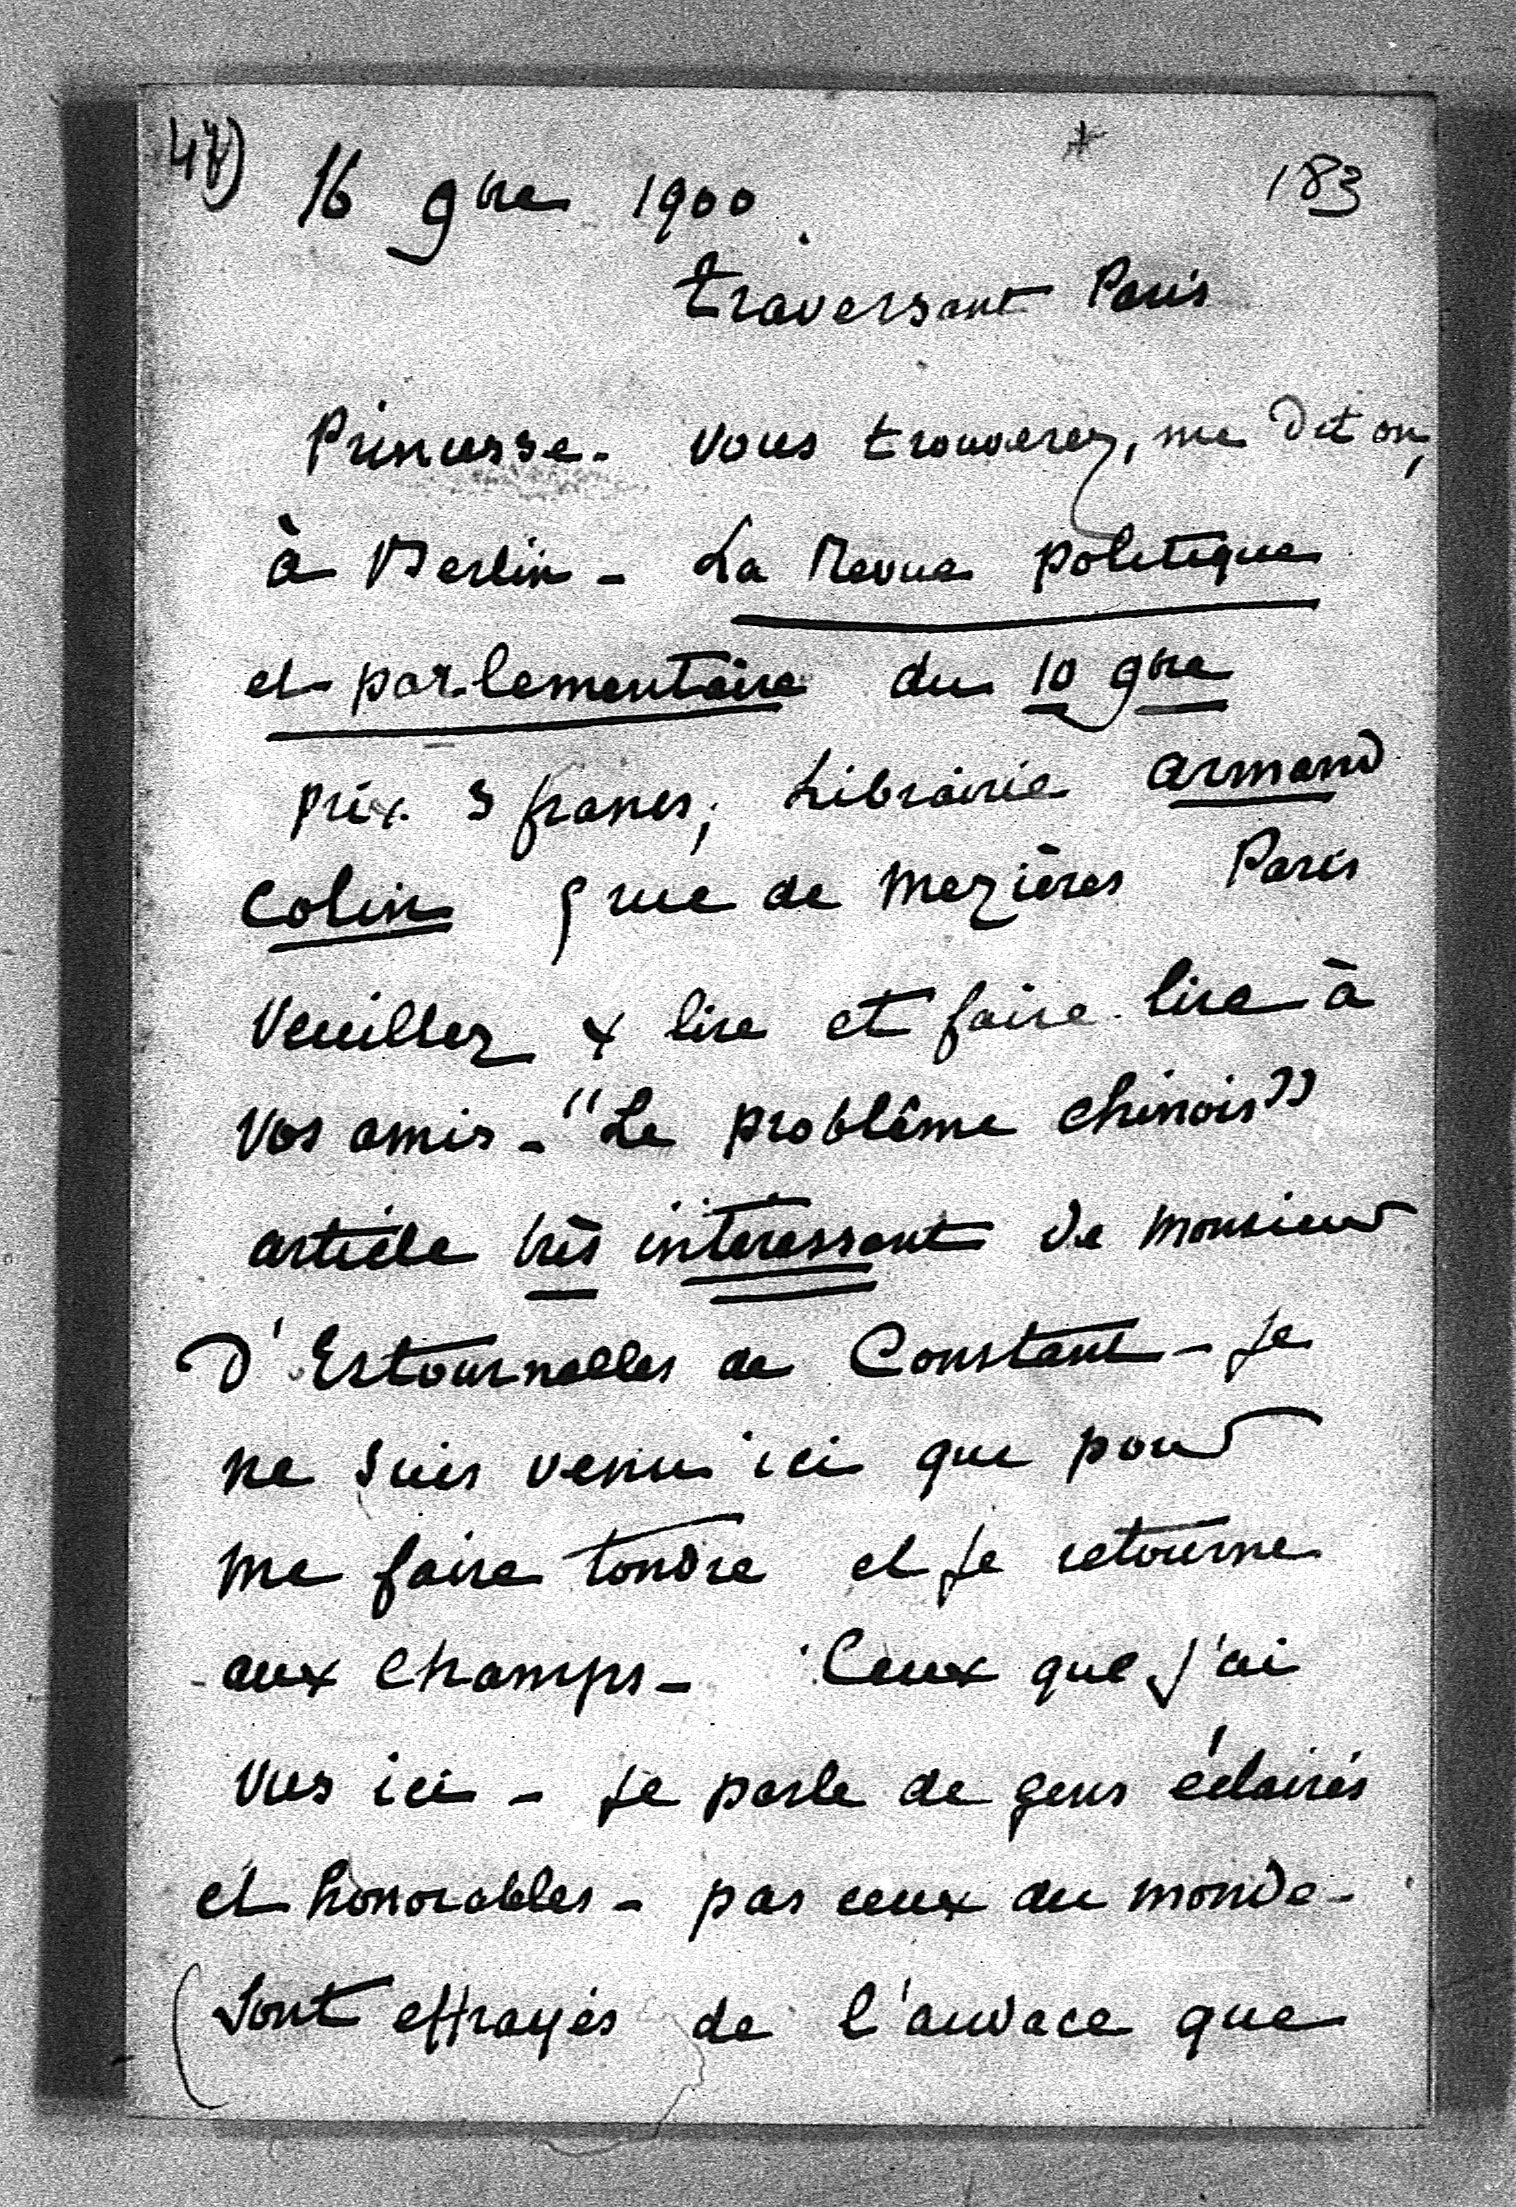 47) 16 9bre 1900. 183
traversant Paris
Princesse. vous trouverez, me dit on,
à Berlin - La Revue politique
et parlementaire du 10 9bre
prix 3 francs, Librairie Armand
Colin 5 rue de Mezières Paris
Veuillez y lire et faire lire à
vos amis - "Le problême chinois"
article très intéressant de monsieur
D'Estournelles de Constant - je
ne suis venu ici que pour
me faire tondre et je retourne
aux champs - Ceux que j'ai
vus ici - je parle de gens éclairés
et honorables - pas ceux du monde -
sont effrayés de l'audace que